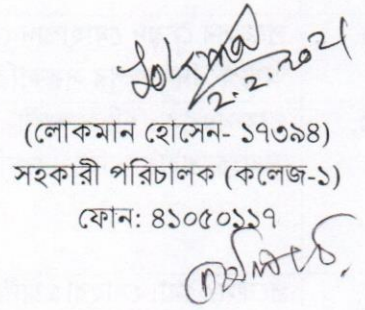 2.2.2021
(লোকমান হোসেন- ১৭৩৯৪)
সহকারী পরিচালক (কলেজ-১)
ফোন: ৪১০৫০১১৭